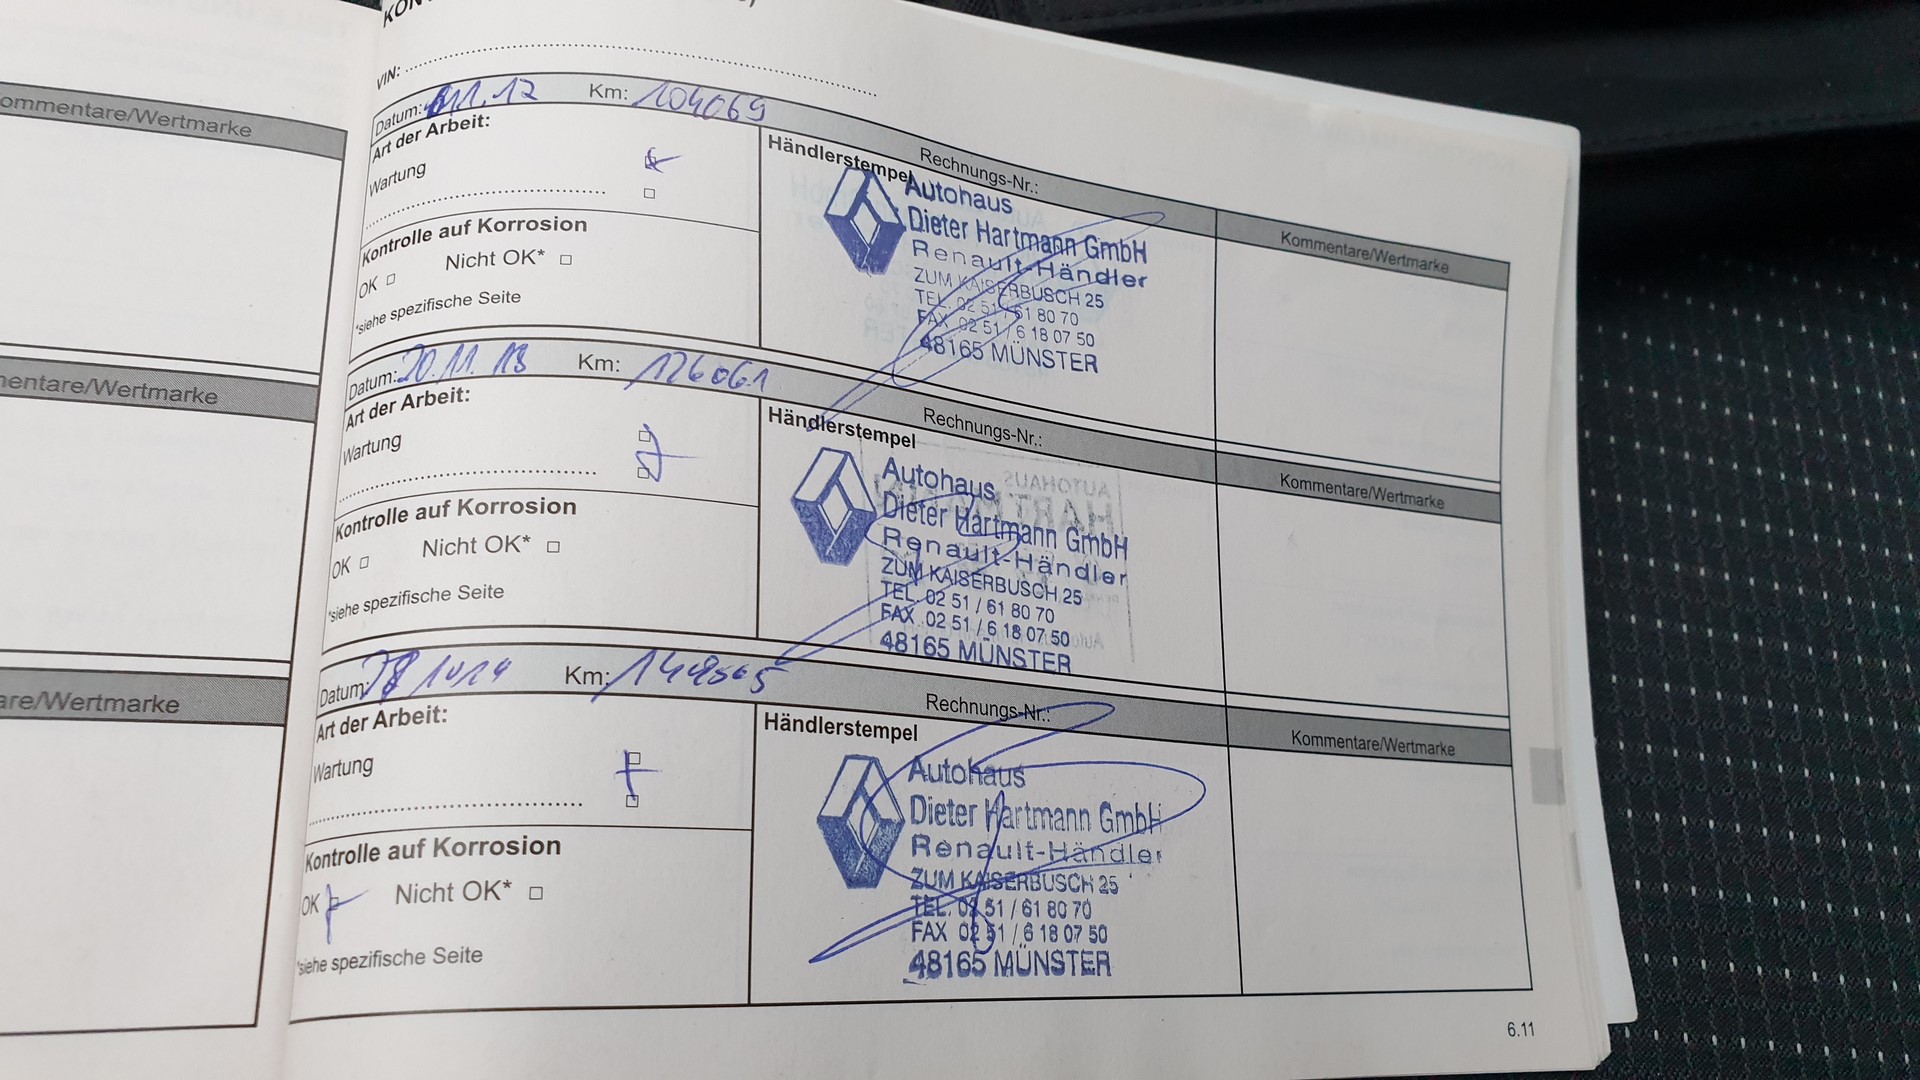 ommentare/Wertmarke
mentare/Wertmarke
are/Wertmarke
VIN:
Datum: 11.12 Km: 104069
Rechnungs-Nr.:
Kommentare/Wertmarke
Art der Arbeit:
Wartung
Kontrolle auf Korrosion
OK Nicht OK*
*siehe spezifische Seite
Händlerstempel
Autohaus
Dieter Hartmann GmbH
Renault-Händler
ZUM KAISERBUSCH 25
TEL. 02 51 / 61 80 70
FAX 02 51 / 6 18 07 50
48165 MÜNSTER
Datum: 20.11.13 Km: 126061
Rechnungs-Nr.:
Kommentare/Wertmarke
Art der Arbeit:
Wartung
Kontrolle auf Korrosion
OK Nicht OK*
*siehe spezifische Seite
Händlerstempel
Autohaus
Dieter Hartmann GmbH
Renault-Händler
ZUM KAISERBUSCH 25
TEL. 02 51 / 61 80 70
FAX 02 51 / 6 18 07 50
48165 MÜNSTER
Datum: Km:
Rechnungs-Nr.:
Kommentare/Wertmarke
Art der Arbeit:
Wartung
Kontrolle auf Korrosion
OK Nicht OK*
*siehe spezifische Seite
Händlerstempel
Autohaus
Dieter Hartmann GmbH
Renault-Händler
ZUM KAISERBUSCH 25
TEL. 02 51 / 61 80 70
FAX 02 51 / 6 18 07 50
48165 MÜNSTER
6.11